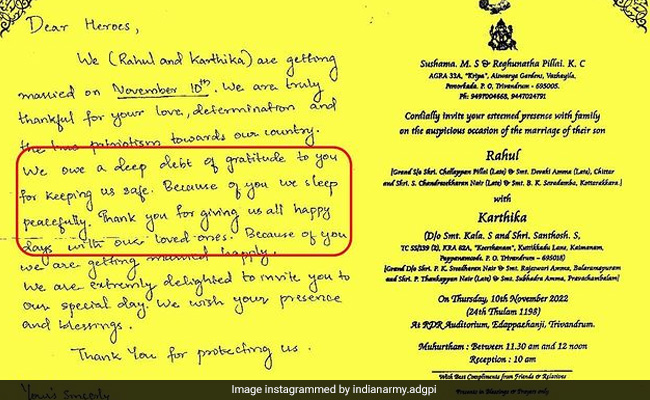 Dear Heroes,
We (Rahul and Karthika) are getting
married on November 10th. We are truly
thankful for your love, determination and
the true patriotism towards our country.
We owe a deep debt of gratitude to you
for keeping us safe. Because of you we sleep
peacefully. Thank you for giving us all happy
days with our loved ones. Because of you
we are getting married happily.
We are extremely delighted to invite you to
our special day. We wish your presence
and blessings.
Thank You for protecting us.
Your's Sincerly
Sushama. M. S & Reghunatha Pillai. K. C
AGRA 33A, "Kripa", Aiswarya Gardens, Vazhayila,
Peroorkada. P. O, Trivandrum - 695005.
Ph: 9497004665, 9447024791
Cordially invite your esteemed presence with family
on the auspicious occasion of the marriage of their son
Rahul
[Grand S/o Shri. Chellappan Pillai (Late) & Smt. Devaki Amma (Late), Chittar
and Shri. S. Chandrasekharan Nair (Late) & Smt. B. K. Sreedamba, Kottarakkara.]
with
Karthika
(D/o Smt. Kala. S and Shri. Santhosh. S,
TC 55/139 (1), KRA 62A, "Keerthanam", Kuttikkadu Lane, Kaimanam,
Pappanamcode. P. O. Trivandrum - 695018)
[Grand D/o Shri. P. K. Sreedharan Nair & Smt. Rajeswari Amma, Balaramapuram
and Shri. P. Thankappan Nair (Late) & Smt. Subhadra Amma, Pravachambalam]
On Thursday, 10th November 2022
(24th Thulam 1198)
At RDR Auditorium, Edappazhanji, Trivandrum.
Muhurtham : Between 11.30 am and 12 noon
Reception : 10 am
With Best Compliments from Friends & Relatives
Presents in Blessings & Prayers only
Image instagrammed by indianarmy.adgpi